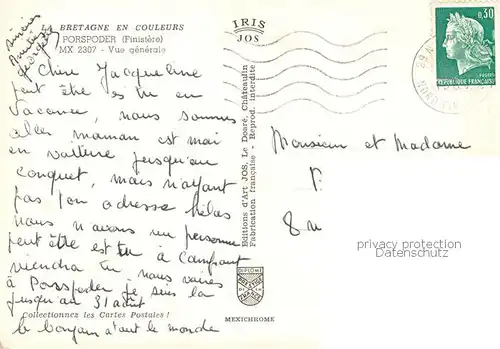 LA BRETAGNE EN COULEURS
PORSPODER (Finistère)
MX 2307 - Vue générale
sincères
Amitiés
Georgette
Chère Jacqueline
peut être es tu en
vacance, nous sommes
allés maman et mai
en voiture jusqu'au
conquet, mais n'ayant
pas ton adresse hélas
nous n'avons vu personne
peut être est tu à
viendra tu nous voire
à Porspoder je suis la
jusqu'au 31 août
le bonjour a tout le monde
Collectionnez les Cartes Postales !
IRIS
JOS
Editions d'Art JOS, Le Doaré, Châteaulin
Fabrication française - Reprod. interdite
DIPLOME
PRESTIGE
DE LA
FRANCE
MEXICHROME
0,30
POSTES
REPUBLIQUE FRANÇAISE
Monsieur et Madame
privacy protection
Datenschutz